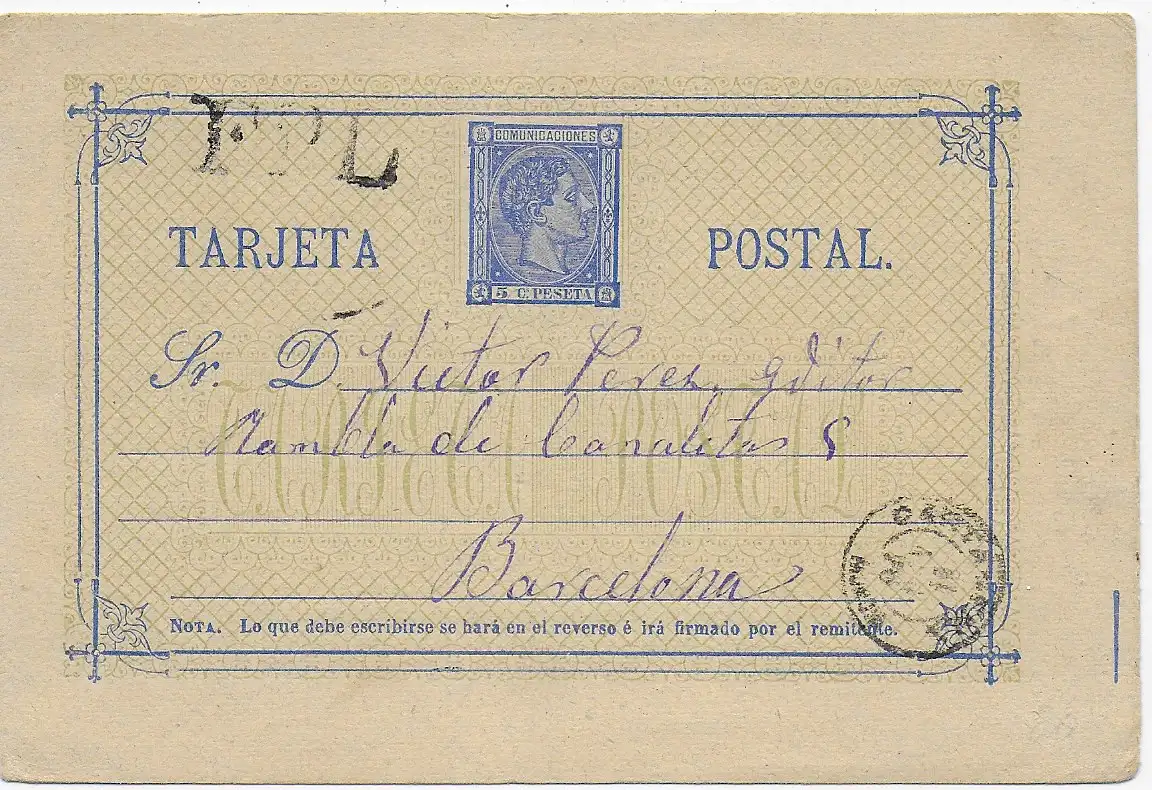 PPL
COMUNICACIONES
5 C. PESETA
TARJETA POSTAL.
Sr. D. Victor Perez, editor
Rambla de Canaletas 5
TARJETA POSTAL
Barcelona
NOTA. Lo que debe escribirse se hará en el reverso é irá firmado por el remitente.